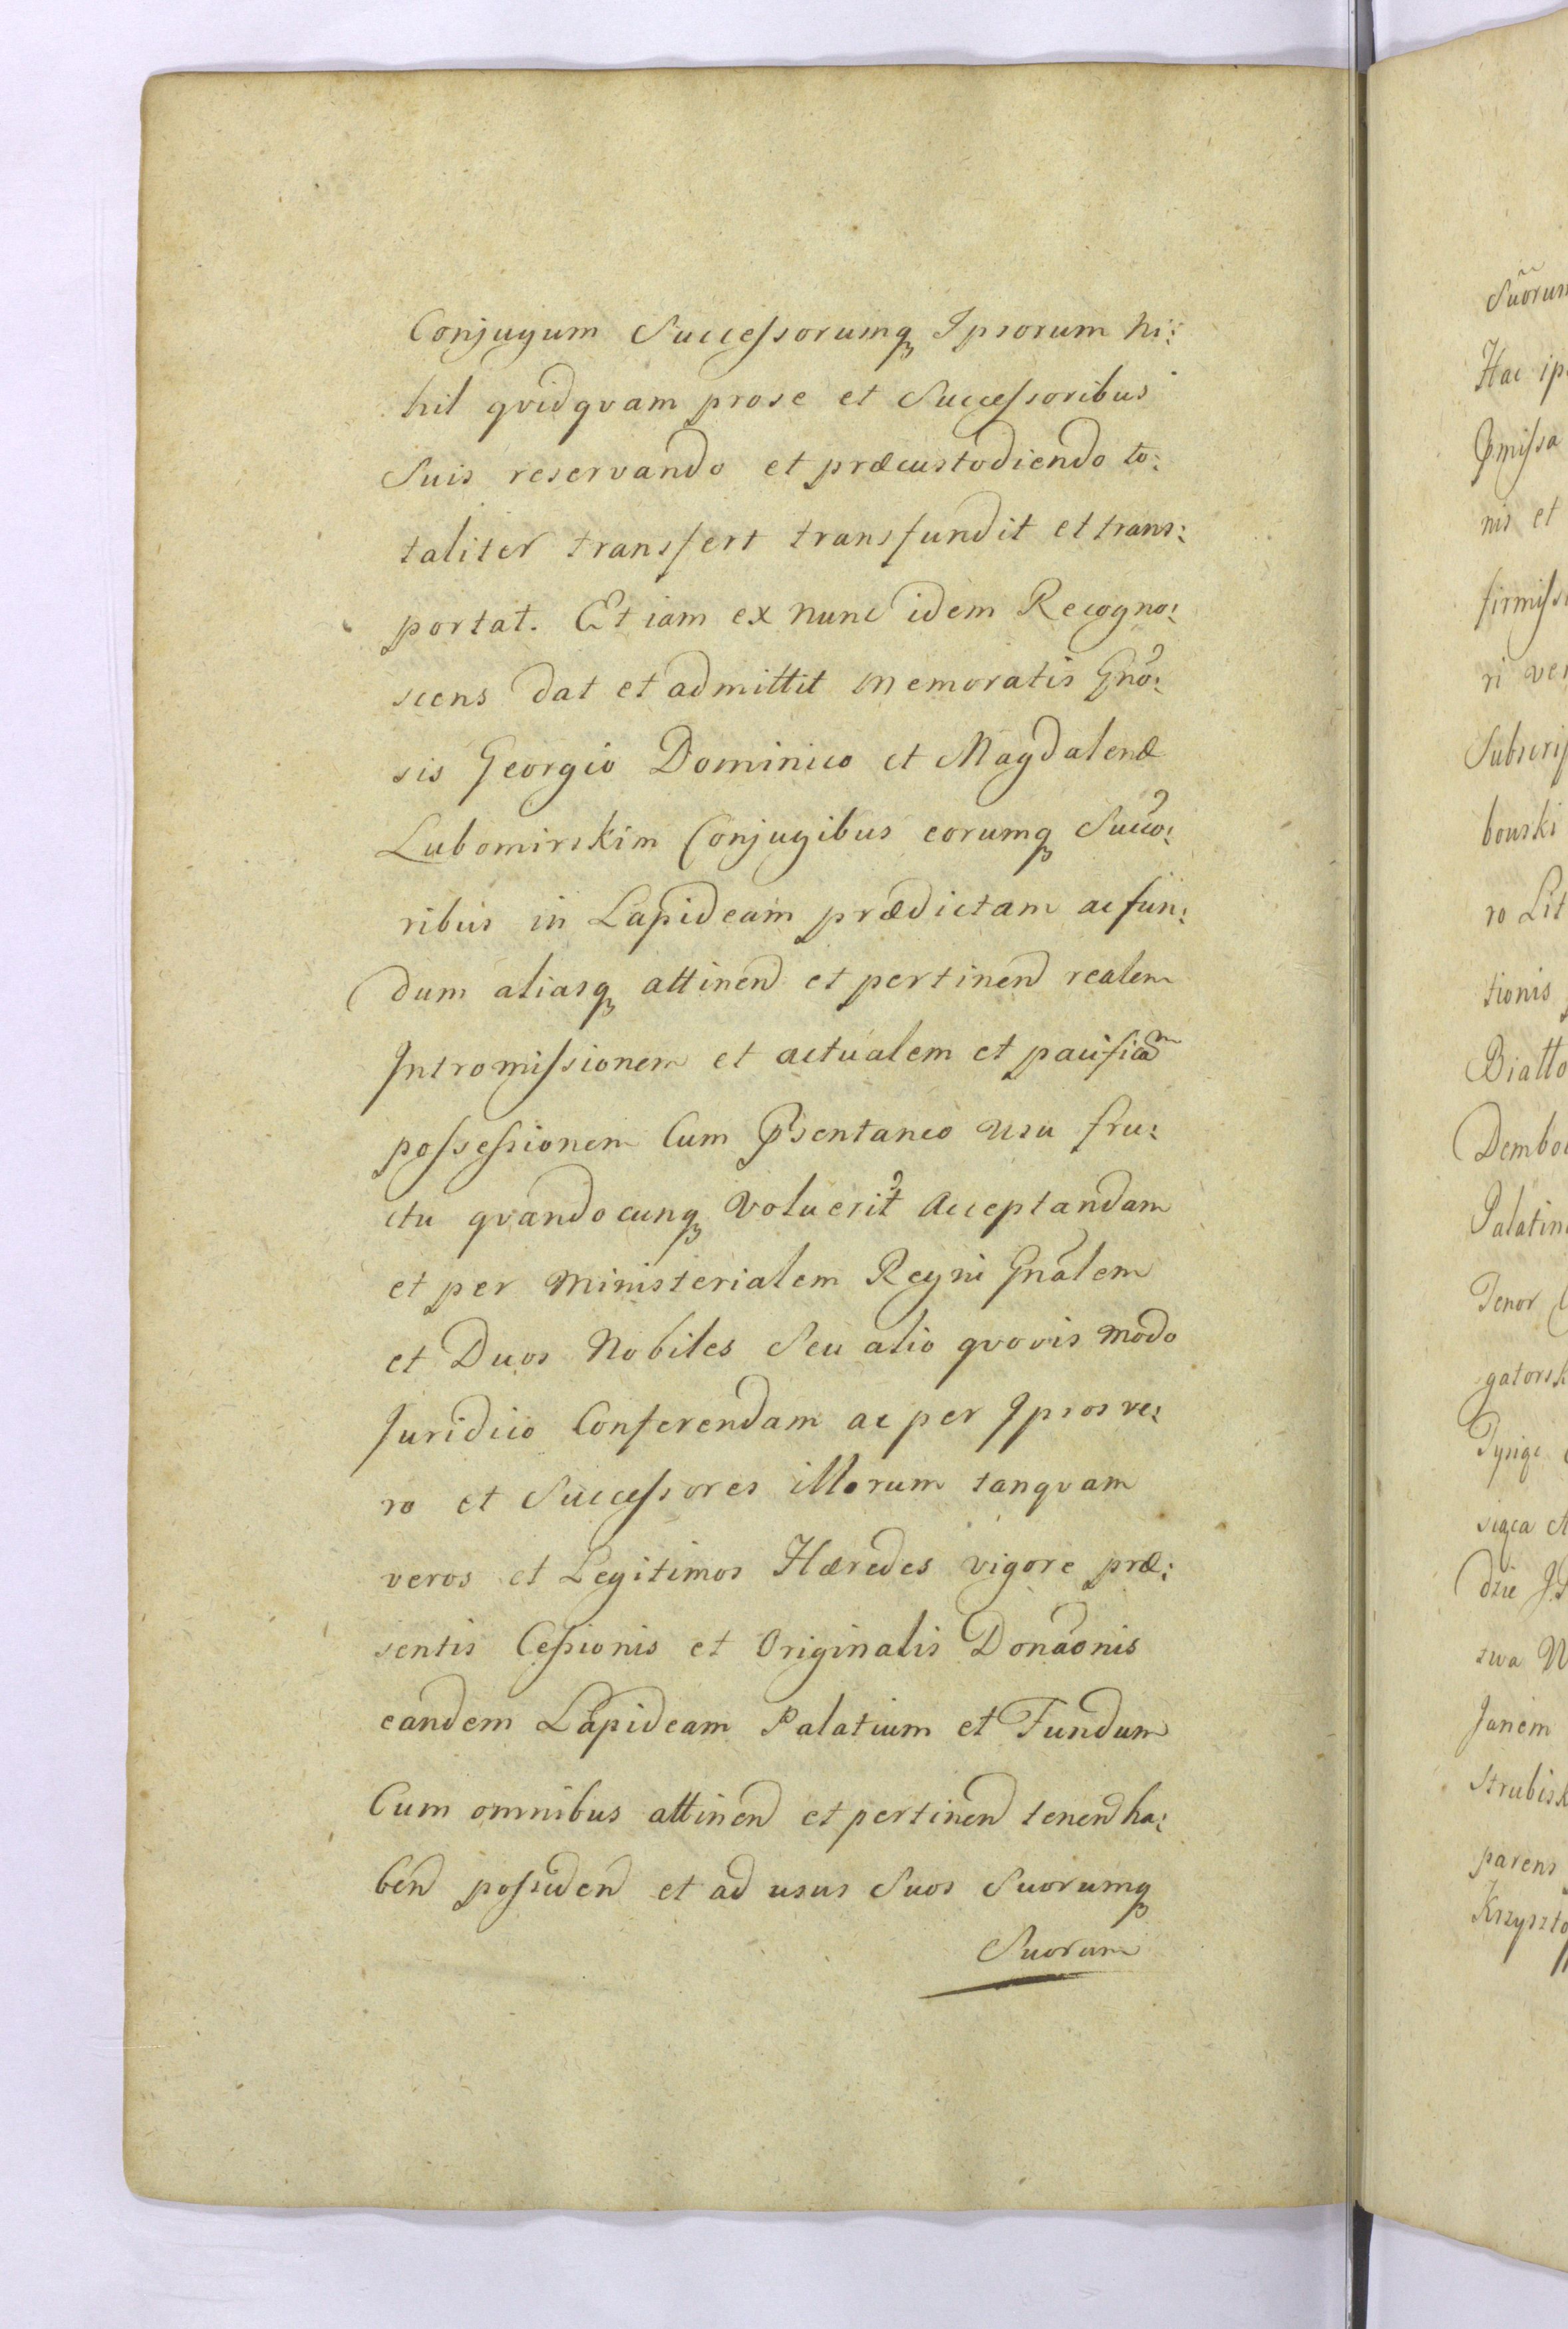 Conjugum Successorumq Ipsorum ni:
hil qvidqvam prose et Successoribus
Suis reservando et præcustodiendo to:
taliter transfert transfundit et trans:
portat. Et iam ex nunc idem Recogno:
scens dat et admittit memoratis Gno:
sis Georgio Dominico et Magdalenæ
Lubomirskim Conjugibus eorumq Succo:
ribus in Lapideam prædictam ac fun:
dum aliasq attinend et pertinend realem
Intromissionem et actualem et pacificam
possessionem Cum Psentaneo usu fru:
ctu qvandocunq voluerit Acceptandam
et per Ministerialem Regni Gnalem
et Duos Nobiles Seu alio qvovis modo
Juridico Conferendam ac per Ipsos ve:
ro et Successores illorum tanqvam
veros et Legitimos Hæredes vigore præ:
sentis Cessionis et Originalis Donaonis
eandem Lapideam Palatium et Fundum
Cum omnibus attinend et pertinend tenend ha:
bend possidend et ad usus Suos Suorumq
Suorum
Suorum
Hac ip
Pmissa
nis et
firmiss
ri ver
Subscrip
bowski
ro Lit
tionis
Dembo
Palatin
Tenor
gatorsk
swa
Janem
Strubisk
parens
Krzyszto